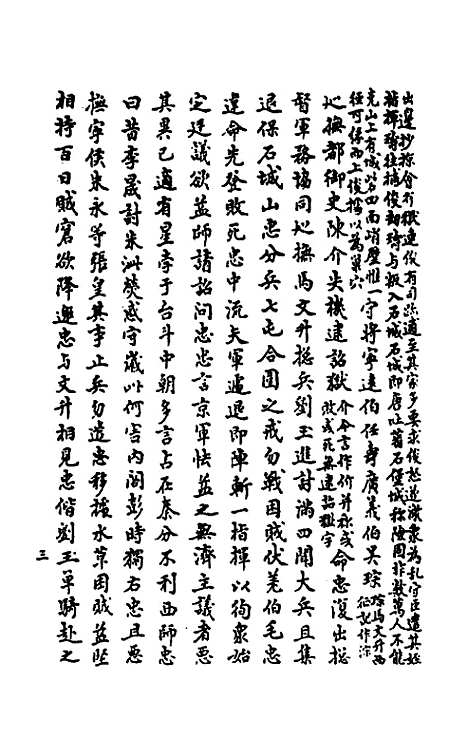 出邊抄掠會有獄連俊有司跡逋至其家多要求俊怒遂激衆為亂守臣遣其姪
指揮璹往捕俊劫璹與叛入石城石城即唐吐蕃石堡城稱險固非數萬人不能
克山上有城以四面峭壁惟一
徑可緣而上俊據以為巢穴
守將寧遠伯任壽廣義伯吳琮
琮馬文升西
征記作淙
地撫都御史陳介失機逮詔獄
介介言作价并称或
敗或死無逮詔獄字
命忠復出總
督軍務協同地撫馬文升總兵劉玉進討滿四聞大兵且集
退保石城山忠分兵七屯合圍之戒勿戰困賊伏羌伯毛忠
違命先登敗死忠中流矢軍遽退即陣斬一指揮以徇衆始
定廷議欲益師請詔問忠忠言京軍怯益之無濟主議者惡
其異己適有星孛于台斗中朝多言占在秦分不利西師忠
曰昔李晟討朱泚熒惑守歲此何害內閣彭時獨右忠且惡
撫寧侯朱永等張皇其事止兵勿遣忠移據水草困賊益堅
相持百日賊窘欲降邀忠與文升相見忠偕劉玉單騎赴之
三